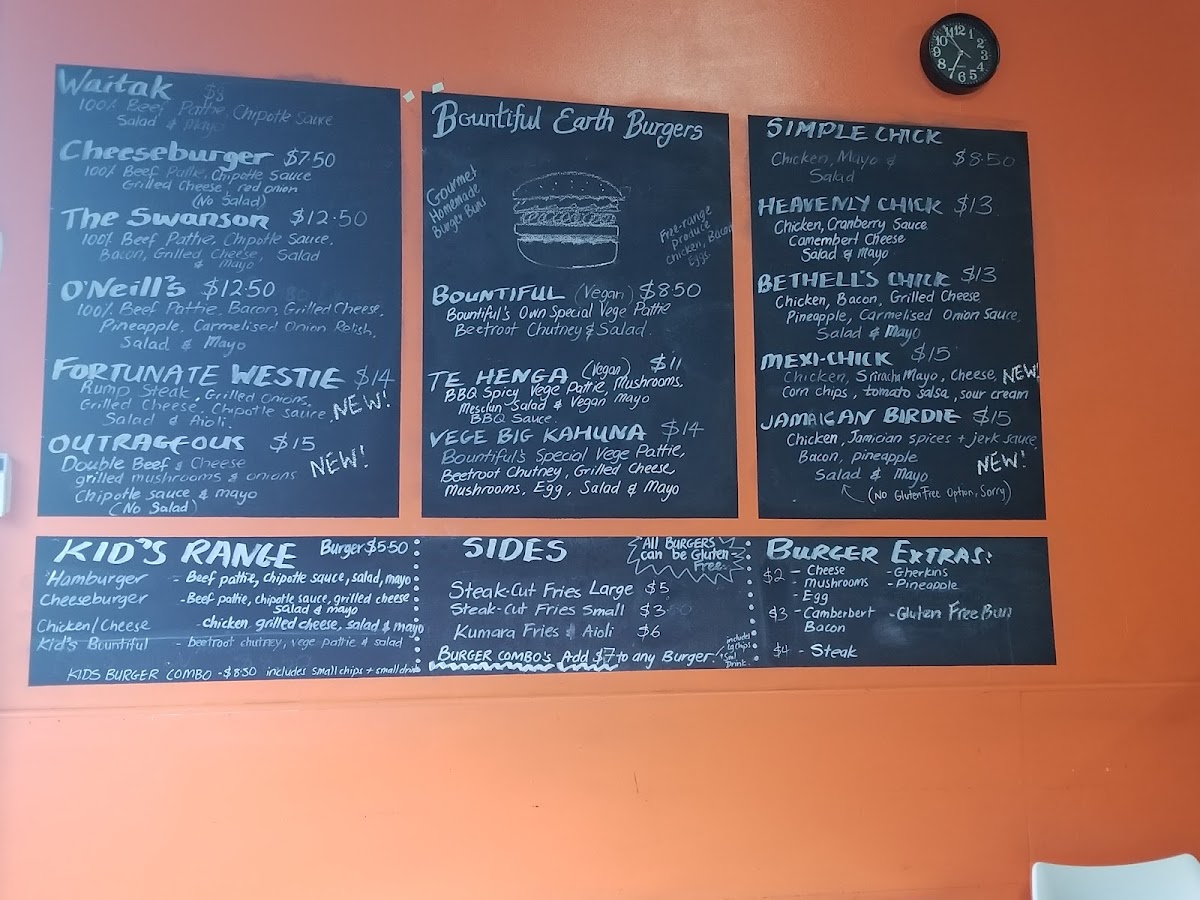 Waitak $8
100% Beef Pattie, Chipotle Sauce
Salad & Mayo
Cheeseburger $7.50
100% Beef Pattie, Chipotle Sauce
Grilled Cheese, red onion
(No Salad)
The Swanson $12.50
100% Beef Pattie, Chipotle Sauce,
Bacon, Grilled Cheese, Salad
& Mayo
O'Neill's $12.50
100% Beef Pattie, Bacon, Grilled Cheese,
Pineapple, Carmelised Onion Relish,
Salad & Mayo
FORTUNATE WESTIE $14
Rump Steak, Grilled Onions,
Grilled Cheese, Chipotle sauce,
Salad & Aioli.
NEW!
OUTRAGEOUS $15
Double Beef & Cheese
grilled mushrooms & onions
Chipotle sauce & mayo
(No Salad)
NEW!
Bountiful Earth Burgers
Gourmet
Homemade
Burger Buns
Free-range
produce
Chicken, Bacon
Eggs
BOUNTIFUL (Vegan) $8.50
Bountiful's Own Special Vege Pattie
Beetroot Chutney & Salad.
TE HENGA (Vegan) $11
BBQ Spicy Vege Pattie, Mushrooms,
Mesclun Salad & Vegan Mayo
BBQ Sauce.
VEGE BIG KAHUNA $14
Bountiful's Special Vege Pattie,
Beetroot Chutney, Grilled Cheese,
Mushrooms, Egg, Salad & Mayo
SIMPLE CHICK
Chicken, Mayo & $8.50
Salad
HEAVENLY CHICK $13
Chicken, Cranberry Sauce
Camembert Cheese
Salad & Mayo
BETHELL'S CHICK $13
Chicken, Bacon, Grilled Cheese
Pineapple, Carmelised Onion Sauce,
Salad & Mayo
MEXI-CHICK $15
Chicken, Sriracha Mayo, Cheese, NEW!
Corn chips, tomato salsa, sour cream
JAMAICAN BIRDIE $15
Chicken, Jamician spices + jerk sauce
Bacon, pineapple
Salad & Mayo
NEW!
(No Gluten Free Option, Sorry)
KID'S RANGE Burger $5.50
Hamburger - Beef pattie, chipotle sauce, salad, mayo
Cheeseburger - Beef pattie, chipotle sauce, grilled cheese
salad & mayo
Chicken/Cheese - chicken, grilled cheese, salad & mayo
Kid's Bountiful - beetroot chutney, vege pattie & salad
KIDS BURGER COMBO - $8.50 includes small chips + small drink
SIDES
All BURGERS
can be Gluten
Free
Steak-Cut Fries Large $5
Steak-Cut Fries Small $3.50
Kumara Fries & Aioli $6
BURGER COMBO'S Add $7 to any Burger!
includes
Lg Chips
& Sml
Drink
BURGER EXTRAS:
$2 - Cheese - Gherkins
- mushrooms - Pineapple
- Egg
$3 - Camberbert - Gluten Free Bun
Bacon
$4 - Steak
12
1
2
3
4
5
6
7
8
9
10
11